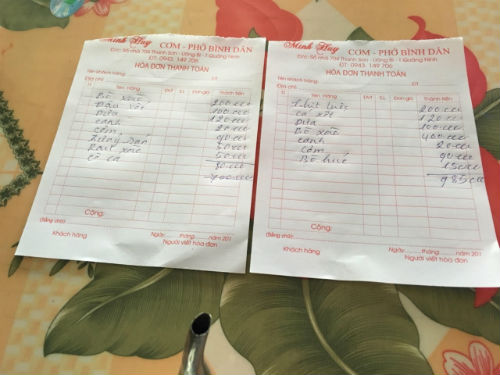 Minh Huy
CƠM - PHỞ BÌNH DÂN
Đ/c: Số nhà 704 Thanh Sơn - Uông Bí - T.Quảng Ninh
ĐT: 0943. 149 706
HÓA ĐƠN THANH TOÁN
Tên khách hàng: ĐT
Địa chỉ:
TT ĐVT S.L Đơn giá Thành tiền
Bò xào 200.000
Đậu 100.000
Dưa 120.000
canh 20.000
cơm 90.000
50.000
Rau xào 50.000
cà
700.000
Cộng:
(Bằng chữ)
Ngày tháng năm 201
Khách hàng Người viết hóa đơn
Minh Huy
CƠM - PHỞ BÌNH DÂN
Đ/c: Số nhà 704 Thanh Sơn - Uông Bí - T.Quảng Ninh
ĐT: 0943. 149 706
HÓA ĐƠN THANH TOÁN
Tên khách hàng: ĐT
Địa chỉ:
TT ĐVT S.L Đơn giá Thành tiền
Thịt luộc 200.000
cá 120.000
Dưa 100.000
Bò xào 400.000
canh 20.000
cơm 90.000
Bò huế
985.000
Cộng:
(Bằng chữ)
Ngày tháng năm 201
Khách hàng Người viết hóa đơn